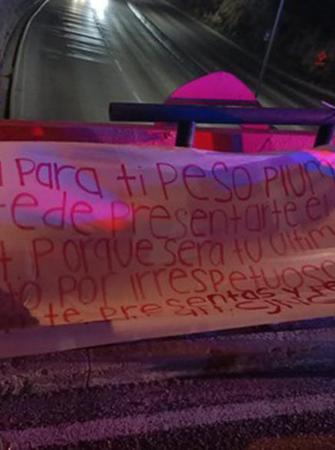 Para ti Peso Plum
ede Presentarte e
Porque sera tu ultim
to Por irrespetuoso
te Presentas y te